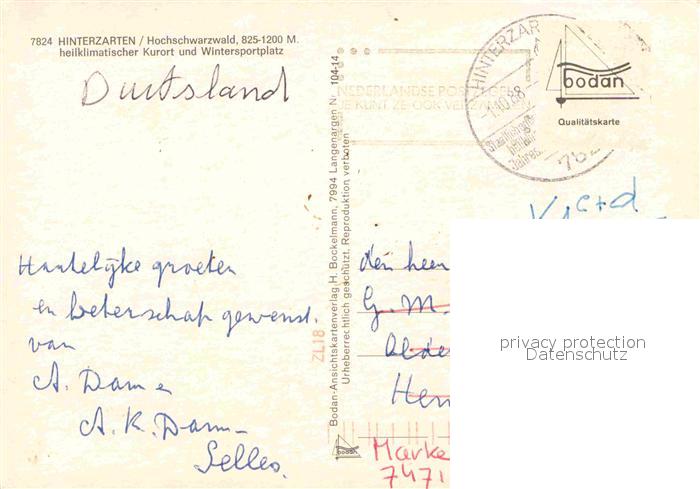 7824 HINTERZARTEN / Hochschwarzwald, 825-1200 M.
heilklimatischer Kurort und Wintersportplatz
Duitsland
HINTERZAR
-1.10.88
782
bodan
Qualitätskarte
NEDERLANDSE POSTZEGELS
JE KUNT ZE OOK VERZAMELEN
Bodan-Ansichtskartenverlag H. Bockelmann, 7994 Langenargen Nr. 104-14
Urheberrechtlich geschützt. Reproduktion verboten
ZL18
Hartelijke groeten
en beterschap gewenst.
van
A. Dam en
A. K. Dam-
Selles.
den heer
G. M.
Alde
Hen
Marke
7471
bodan
privacy protection
Datenschutz